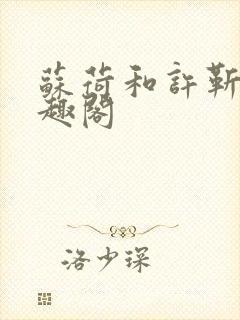 蘇荷和許靳
趣閣
洛少琛